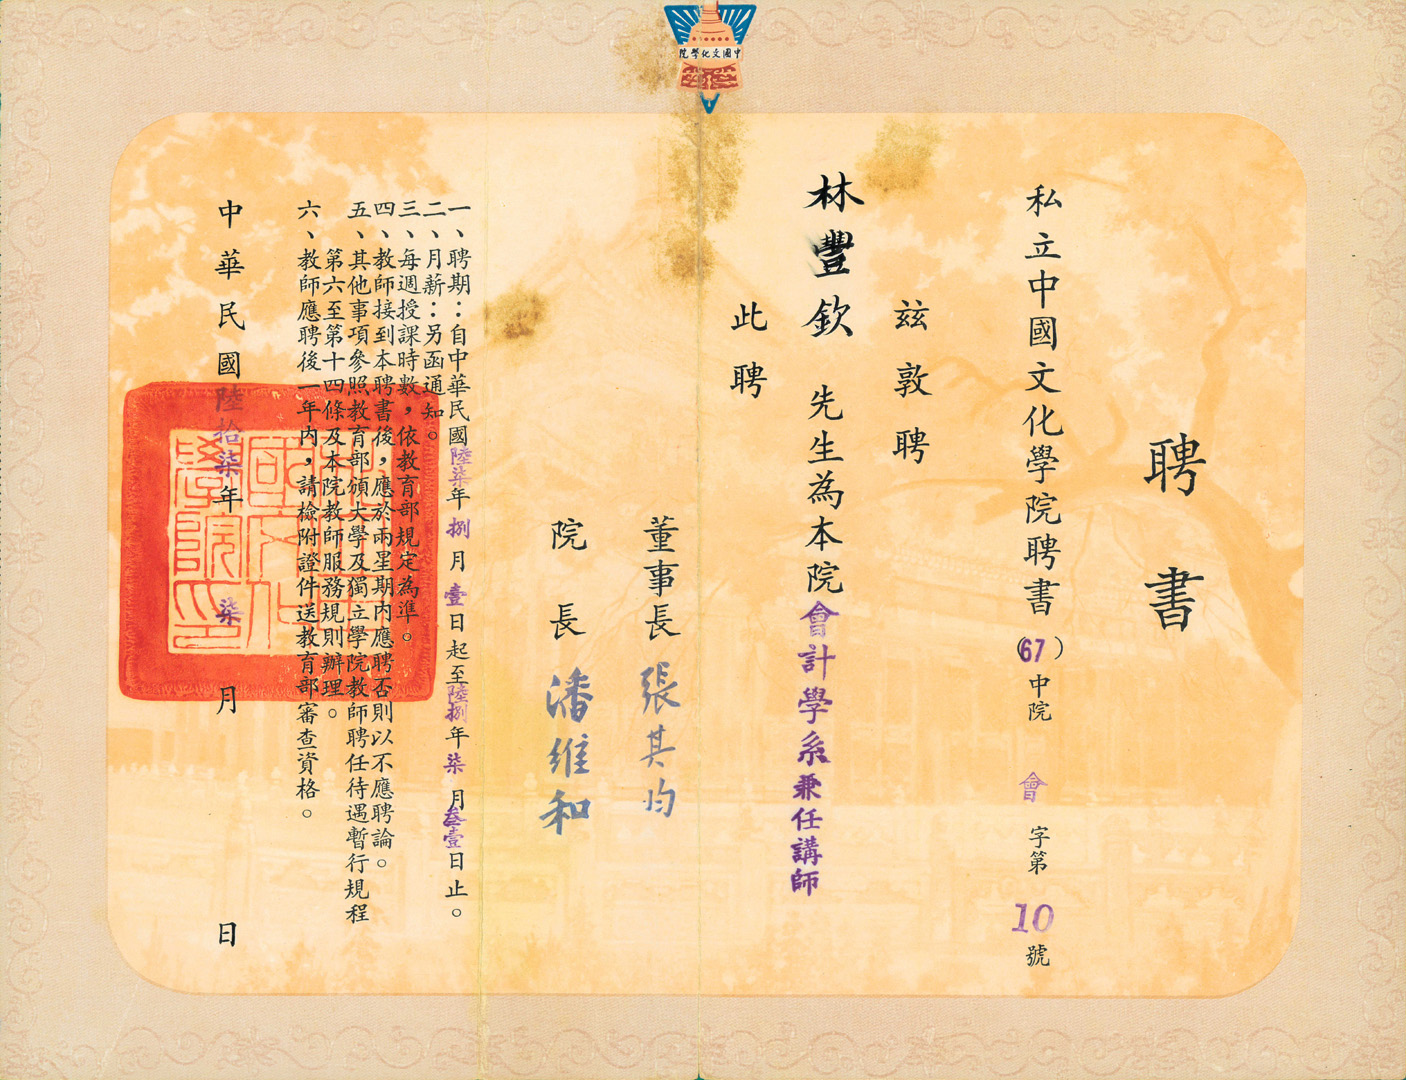 中國文化學院
聘書
私立中國文化學院聘書(67)中院會字第10號
茲敦聘
林豐欽先生為本院會計學系兼任講師
此聘
董事長張其昀
院長潘維和
一、聘期：自中華民國陸柒年捌月壹日起至陸捌年柒月叁壹日止。
二、月薪：另函通知。
三、每週授課時數，依教育部規定為準。
四、教師接到本聘書後，應於兩星期內應聘否則以不應聘論。
五、其他事項參照教育部頒大學及獨立學院教師聘任待遇暫行規程
第六至第十四條及本院教師服務規則辦理。
六、教師應聘後一年內，請檢附證件送教育部審查資格。
中華民國陸拾柒年柒月日